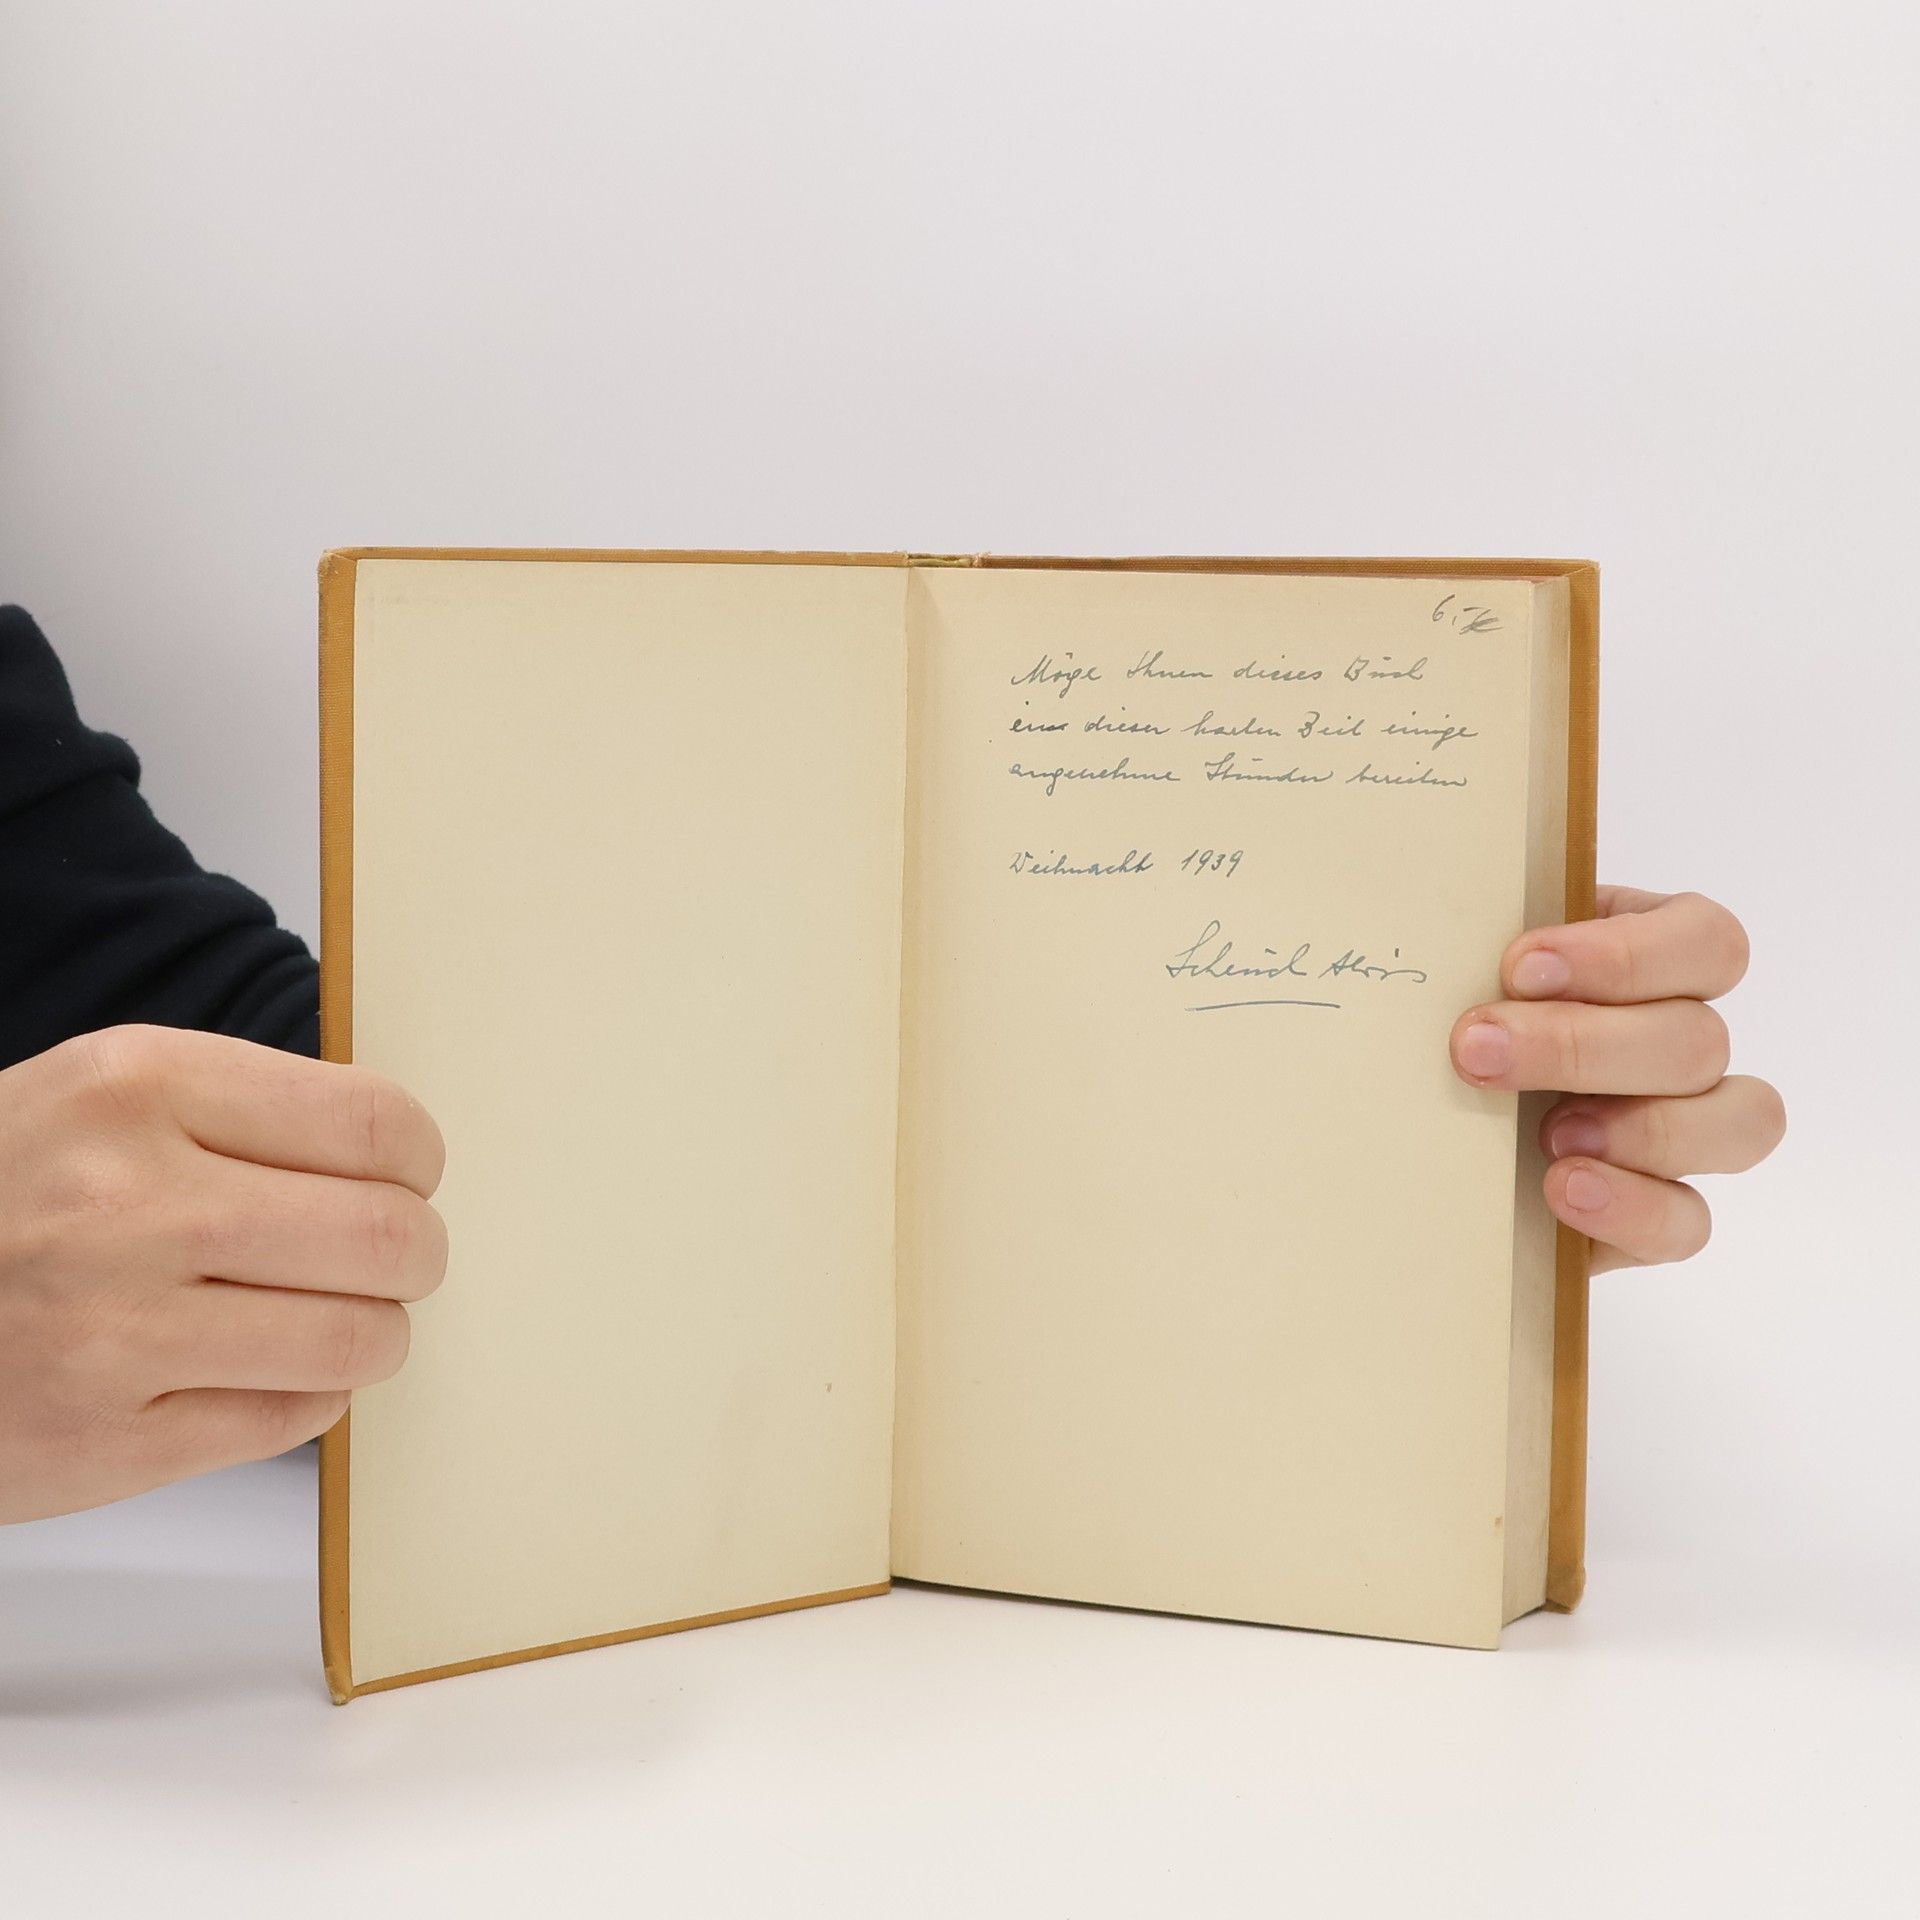 6,-
Möge Ihnen dieses Buch
in dieser harten Zeit einige
angenehme Stunden bereiten
Weihnacht 1939
Alois